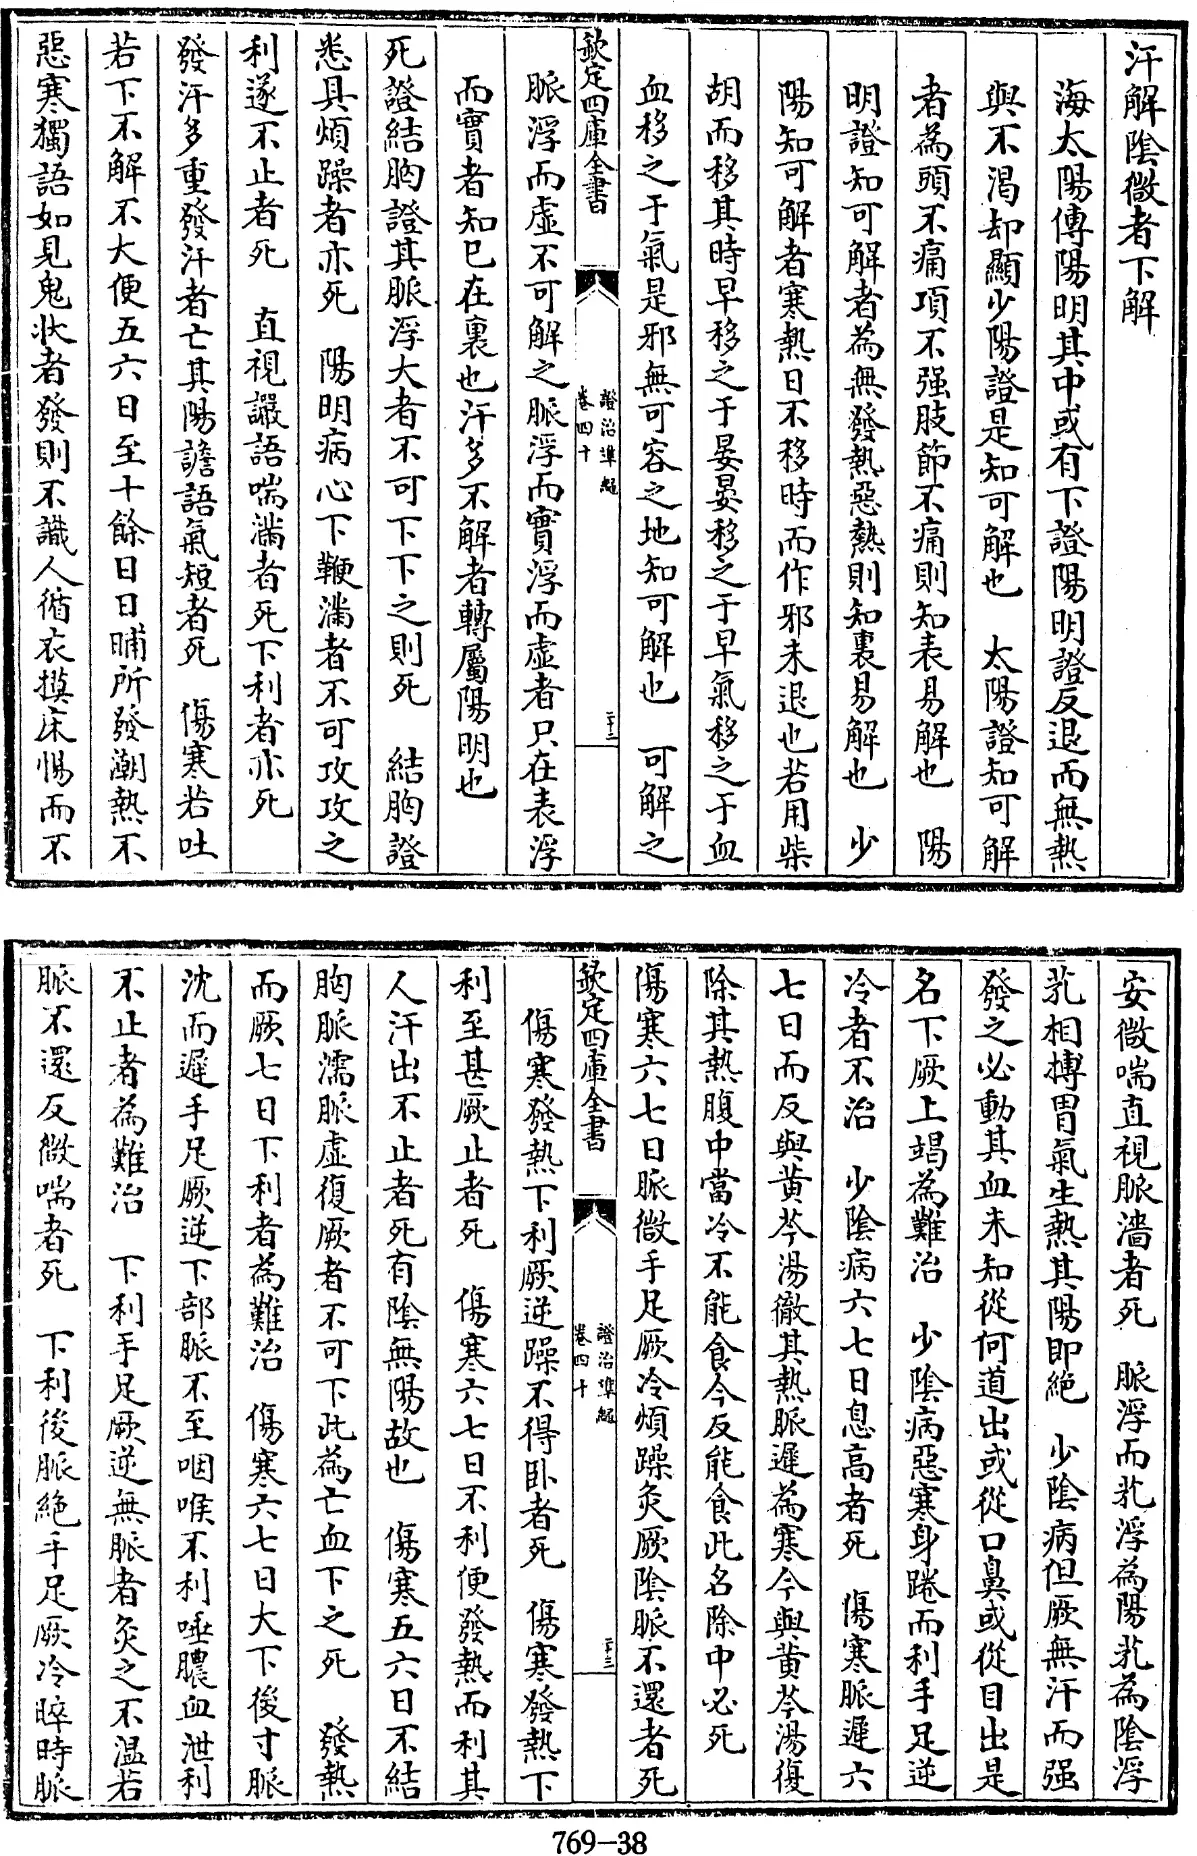 汗解陰微者下解
海太陽傳陽明其中或有下證陽明證反退而無熱
與不渴却顯少陽證是知可解也　太陽證知可解
者為頭不痛項不强肢節不痛則知表易解也　陽
明證知可解者為無發熱惡熱則知裏易解也　少
陽知可解者寒熱日不移時而作邪未退也若用柴
胡而移其時早移之于晏晏移之于早氣移之于血
血移之于氣是邪無可容之地知可解也　可解之
欽定四庫全書
證治準繩
卷四十
二十二
脈浮而虛不可解之脈浮而實浮而虛者只在表浮
而實者知已在裏也汗多不解者轉屬陽明也
死證結胸證其脈浮大者不可下下之則死　結胸證
悉具煩躁者亦死　陽明病心下鞕滿者不可攻攻之
利遂不止者死　直視讝語喘滿者死下利者亦死
發汗多重發汗者亡其陽譫語氣短者死　傷寒若吐
若下不解不大便五六日至十餘日日晡所發潮熱不
惡寒獨語如見鬼狀者發則不識人循衣摸床惕而不
安微喘直視脈濇者死　脈浮而芤浮為陽芤為陰浮
芤相搏胃氣生熱其陽即絶　少陰病但厥無汗而强
發之必動其血未知從何道出或從口鼻或從目出是
名下厥上竭為難治　少陰病惡寒身踡而利手足逆
冷者不治　少陰病六七日息高者死　傷寒脈遲六
七日而反與黄芩湯徹其熱脈遲為寒今與黄芩湯復
除其熱腹中當冷不能食今反能食此名除中必死
傷寒六七日脈微手足厥冷煩躁灸厥陰脈不還者死
欽定四庫全書
證治準繩
卷四十
二十三
傷寒發熱下利厥逆躁不得卧者死　傷寒發熱下
利至甚厥止者死　傷寒六七日不利便發熱而利其
人汗出不止者死有陰無陽故也　傷寒五六日不結
胸脈濡脈虛復厥者不可下此為亡血下之死　發熱
而厥七日下利者為難治　傷寒六七日大下後寸脈
沈而遲手足厥逆下部脈不至咽喉不利唾膿血泄利
不止者為難治　下利手足厥逆無脈者灸之不温若
脈不還反微喘者死　下利後脈絶手足厥冷晬時脈
769-38